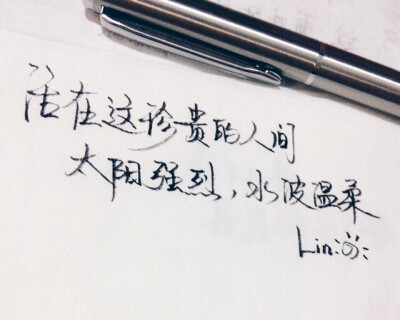 活在这珍贵的人间
太阳强烈，水波温柔
Lin